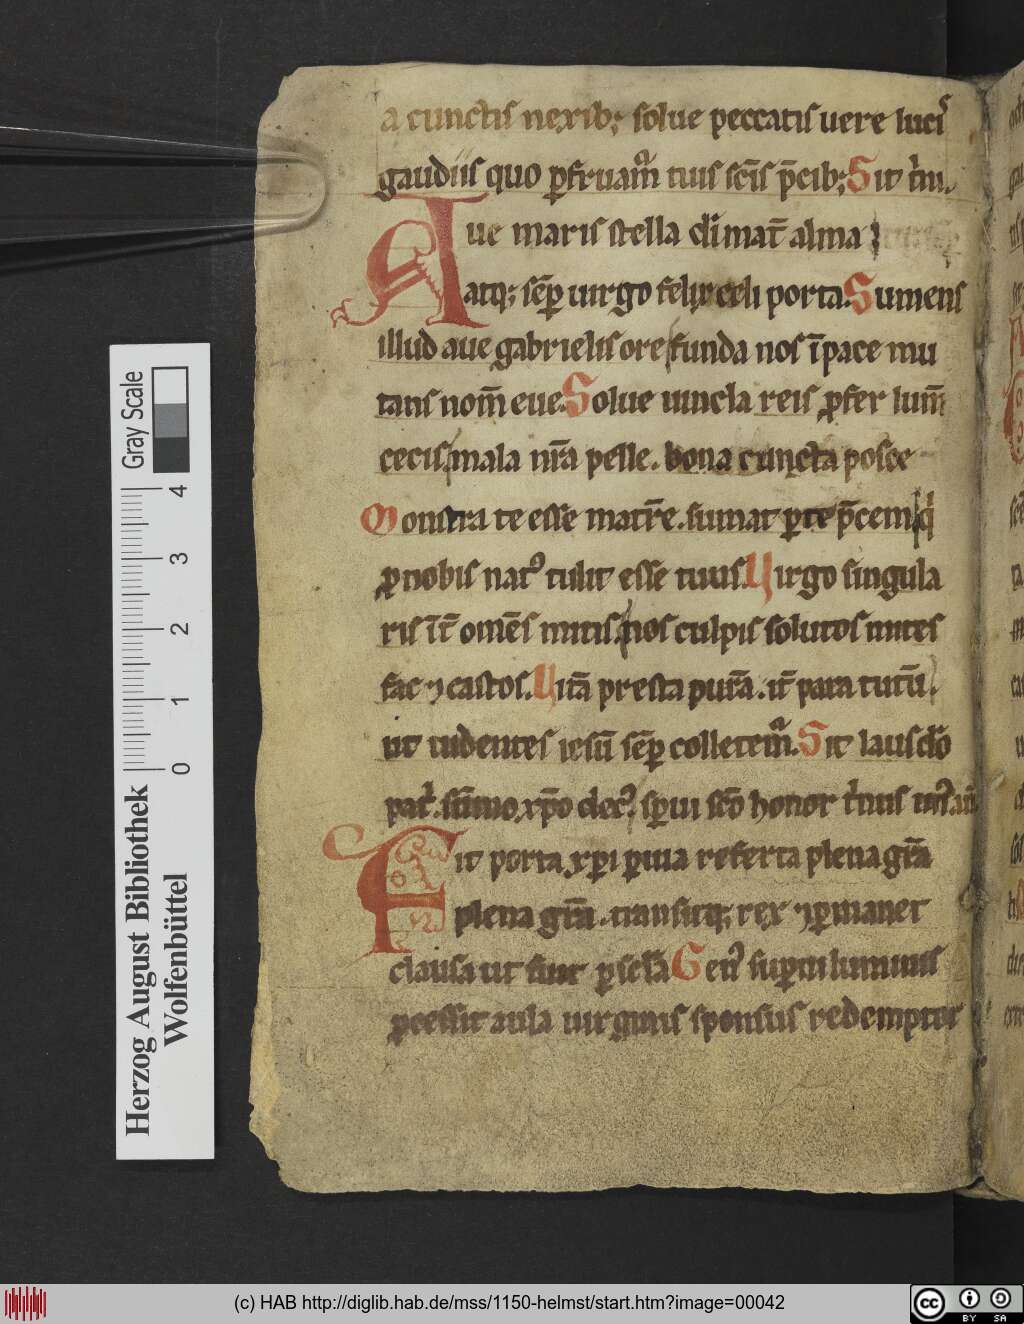 a cunctis nexib; solue peccatis uere luci
gaudiis quo ꝑfruam̃ tuis sc̃is p̃cib; Sit t̃ni.
Aue maris stella di mat̃ alma
atq; sẽꝑ uirgo felix celi porta. Sumens
illud aue gabrielis ore funda nos ĩ pace mu
tans nom̃ eue. Solue uincla reis ꝓfer lum̃
cecis mala nr̃a pelle. bona cuncta posce
Monstra te esse matr̃e. sumat ꝑ te p̃cem q̇
ꝓ nobis natꝰ tulit esse tuus. Uirgo singula
ris ĩt̃ om̃es mitis. nos culpis solutos mites
fac ⁊ castos. Uitã presta purã. it̃ para tutũ.
ut uidentes iesũ sẽꝑ colletem̃. Sit laus do
pat̃. sũmo xp̃o decꝰ. sp̃ui sc̃o honor t̃nus unꝰ
Fit porta xp̃i ꝑuia referta plena gr̃a
plena gr̃a. transitq; rex ⁊ ꝑmanet
clausa ut fuit ꝑ sc̃la Genꝰ suꝑni luminis
ꝓcessit aula uirginis sponsus redemptor
Gray Scale
4 3 2 1 0
Herzog August Bibliothek
Wolfenbüttel
(c) HAB http://diglib.hab.de/mss/1150-helmst/start.htm?image=00042
cc BY SA